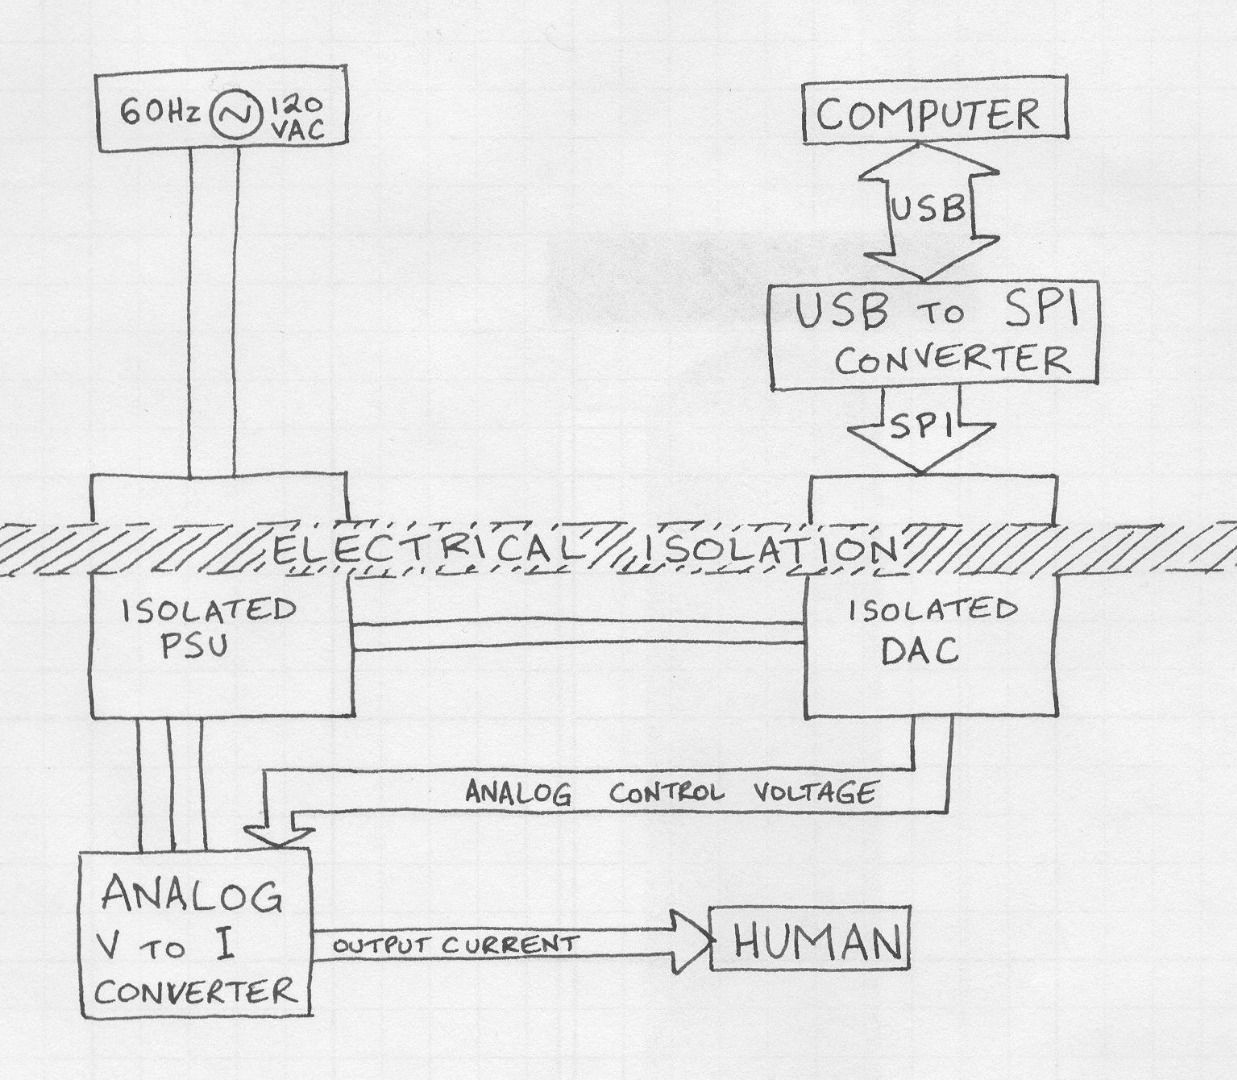 60Hz 120
VAC
COMPUTER
USB
USB TO SPI
CONVERTER
SPI
ELECTRICAL ISOLATION
ISOLATED
PSU
ISOLATED
DAC
ANALOG CONTROL VOLTAGE
ANALOG
V TO I
CONVERTER
OUTPUT CURRENT
HUMAN